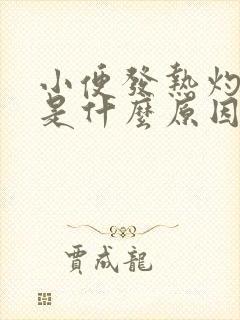 小便發熱灼
是什麼原因
賈成龍